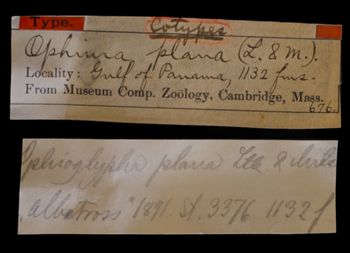 Type.
Cotypes
Ophiura plana (L. & M.).
Locality: Gulf of Panama, 1132 fms.
From Museum Comp. Zoölogy, Cambridge, Mass.
676.
Ophioglypha plana Ltk. &
"Albatross" 1891. St. 3376 1132 f